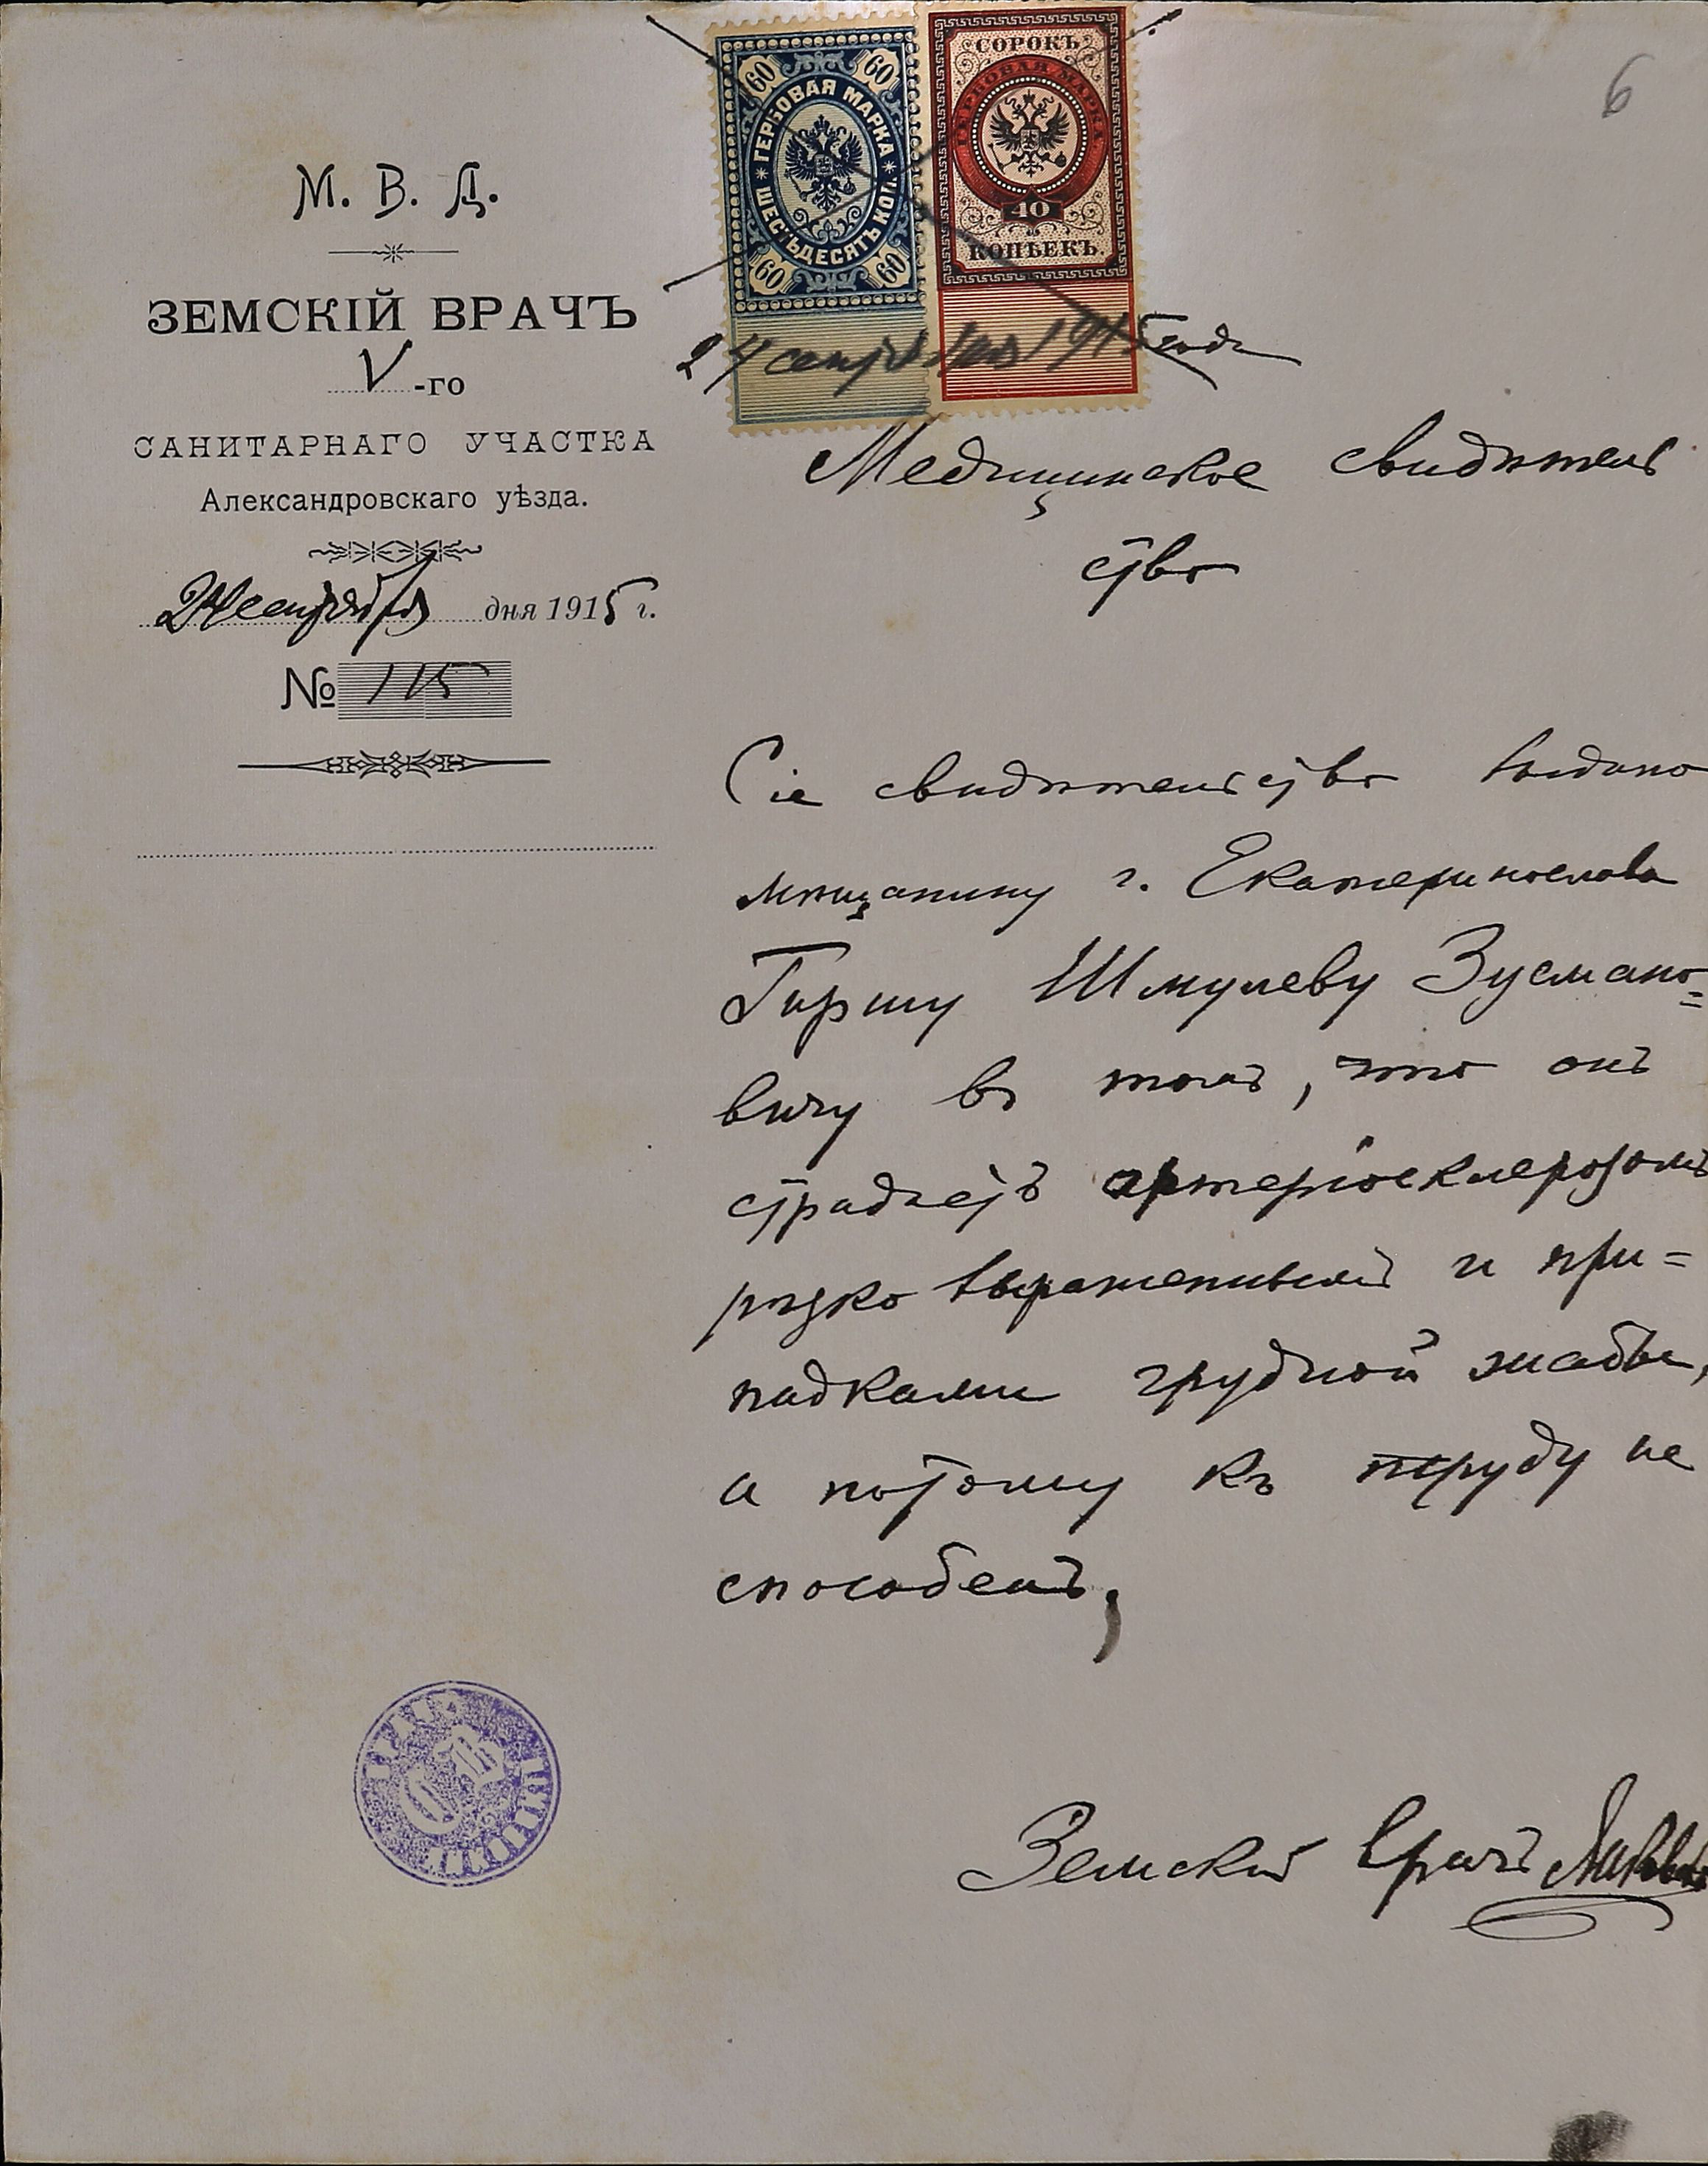 6
60 60
ГЕРБОВАЯ МАРКА
ШЕСТЬДЕСЯТЪ КОП.
60 60
СОРОКЪ
ГЕРБОВАЯ МАРКА
40
КОПѢЕКЪ
24 сентября 1915 года
М. В. Д.
ЗЕМСКІЙ ВРАЧЪ
V-го
САНИТАРНАГО УЧАСТКА
Александровскаго уѣзда.
24 сентября дня 1915 г.
№ 115
Медицинское свидѣтель
ство
Сіе свидѣтельство выдано
мѣщанину г. Екатеринослава
Гиршу Шмулеву Зусмано=
вичу въ томъ, что онъ
страдаетъ артеріосклерозомъ
рѣзко выраженнымъ и при=
падками грудной жабы,
а потому къ труду не
способенъ,
Земскій врачъ